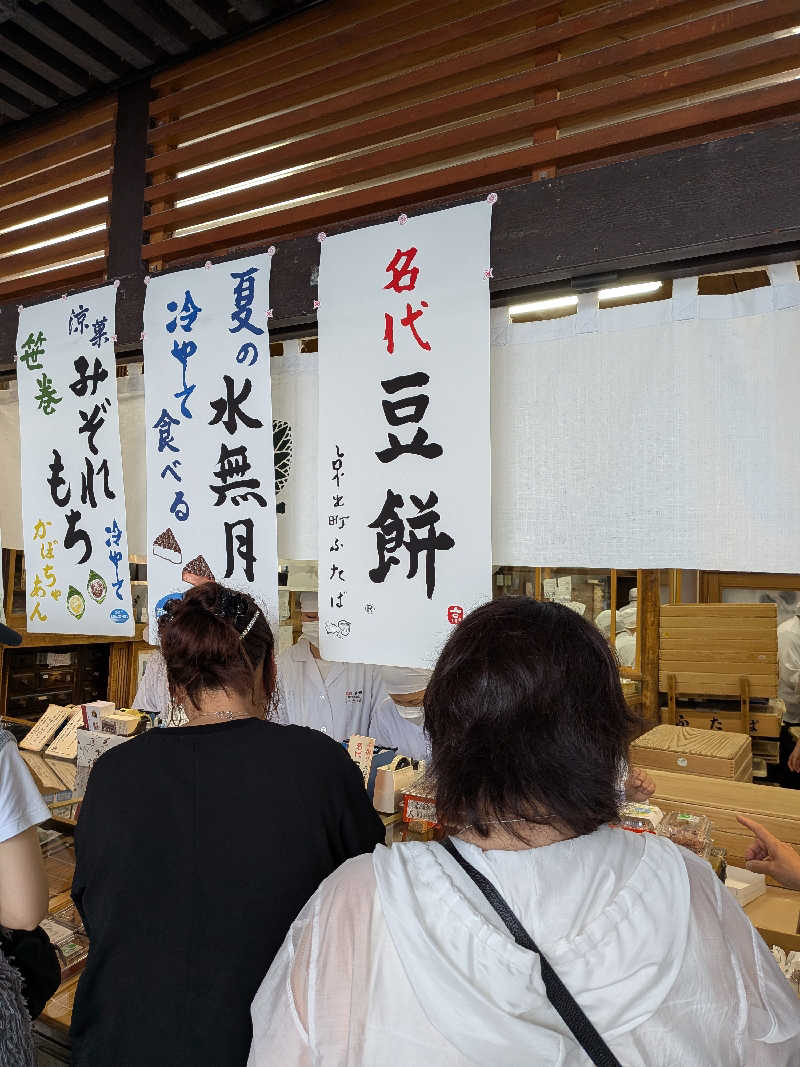 名代
豆餅
京出町ふたば
京
夏の
水無月
冷やして
食べる
涼菓
みぞれ
もち
笹巻
冷やして
かぼちゃ
あん
ふたば